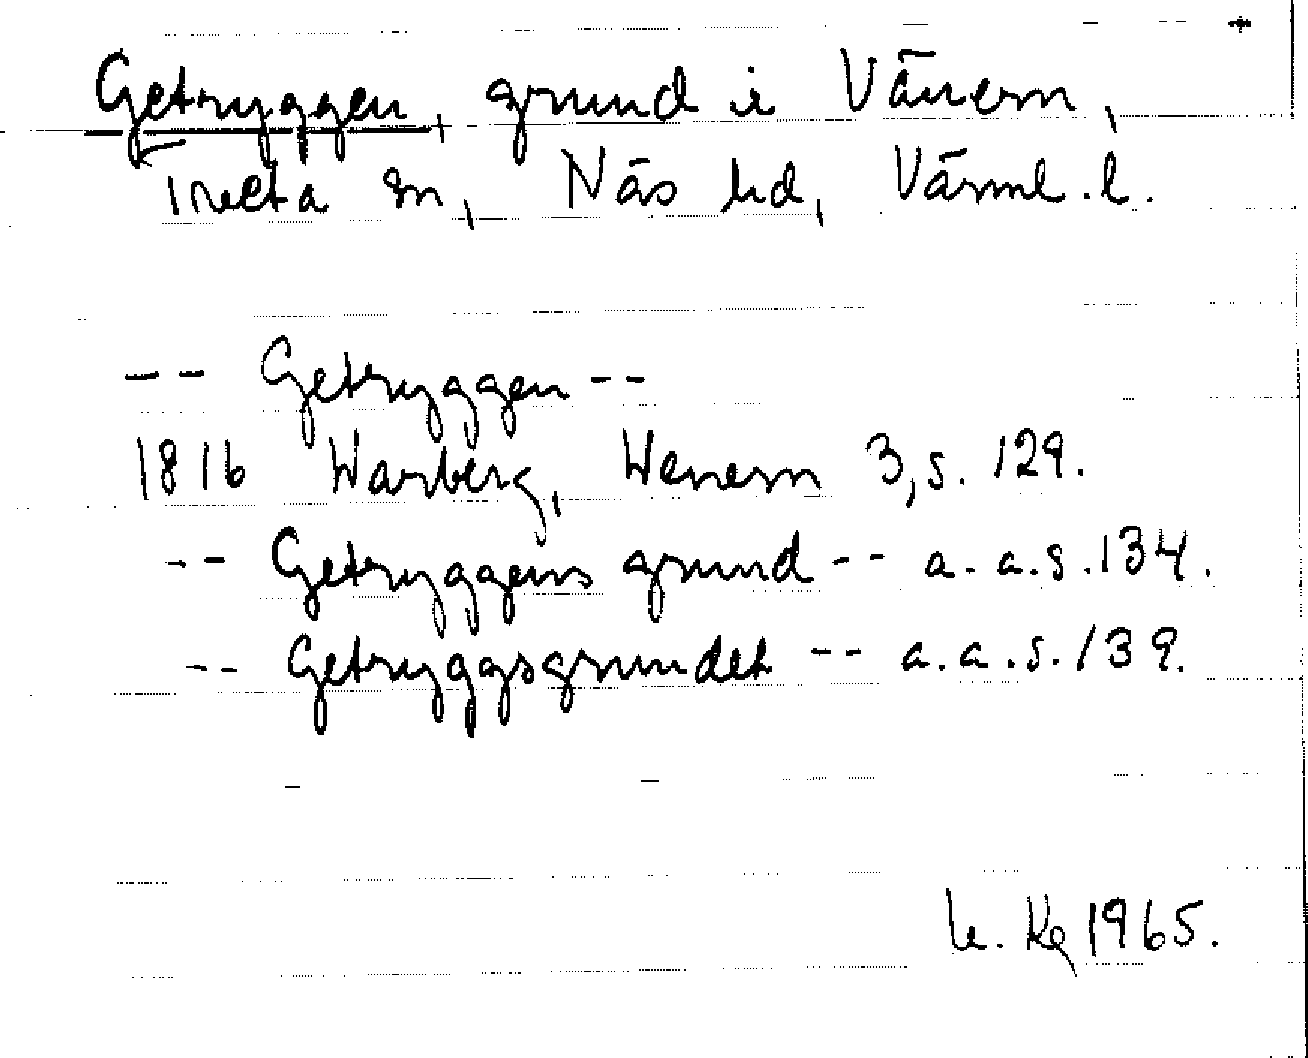 Getryggen, grund i Vänern,
Millesvik sn, Näs hd, Värml. l.
-- Getryggen --
1816 Warberg, Wenern 3, s. 129.
-- Getryggens grund -- a. a. s. 134.
-- Getryggsgrundet -- a. a. s. 139.
1965.